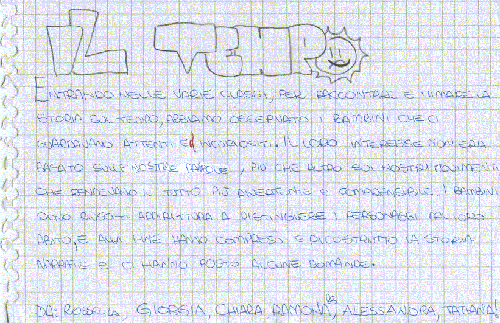 IL TEMPO
ENTRANDO NELLE VARIE CLASSI, PER RACCONTARE E MIMARE LA
STORIA SUL TEMPO, ABBIAMO OSSERVATO I BAMBINI CHE CI
GUARDAVANO ATTENTI E INCURIOSITI. IL LORO INTERESSE NON ERA
BASATO SULLE NOSTRE PAROLE, PIÙ CHE ALTRO SUI NOSTRI MOVIMENTI
CHE RENDEVANO IL TUTTO PIÙ DIVERTENTE E COMPRENSIBILE. I BAMBINI
SONO RIUSCITI ADDIRITTURA A DISTINGUERE I PERSONAGGI DAL LORO
ABITO, E ALLA FINE HANNO COMPRESO E RICOSTRUITO LA STORIA
NARRATA E CI HANNO POSTO ALCUNE DOMANDE.
DA: ROSSELLA GIORGIA, CHIARA RAMONA, ALESSANDRA, TATIANA